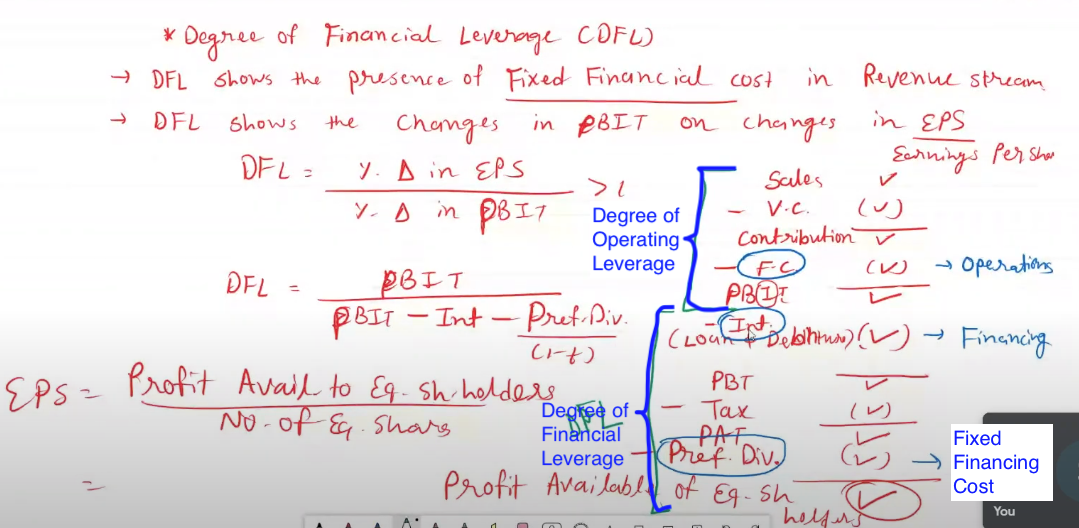 * Degree of Financial Leverage (DFL)
→ DFL shows the presence of Fixed Financial cost in Revenue stream
→ DFL shows the changes in PBIT on changes in EPS
Earnings Per Sha
DFL = % Δ in EPS
% Δ in PBIT
> 1
DFL = PBIT
PBIT - Int - Pref. Div.
(1-t)
EPS = Profit Avail to Eq. Sh. holders
No. of Eq. Shares
=
Degree of
Operating
Leverage
Sales ✓
- V.C. (✓)
Contribution ✓
- F.C (✓) → Operations
PBIT ✓
- Int.
(Loan + Debentures) (✓) → Financing
PBT ✓
- Tax (✓)
PAT ✓
- Pref. Div. (✓) →
Profit Available of Eq. Sh
holders ✓
Degree of
Financial
Leverage
DFL
Fixed
Financing
Cost
You